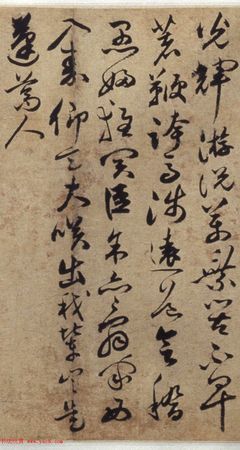 光輝游説萬乘苦不早
著鞭跨馬涉遠道會稽
愚婦輕買臣余亦辭家西
入秦仰天大咲出我輩豈是
蓬蒿人